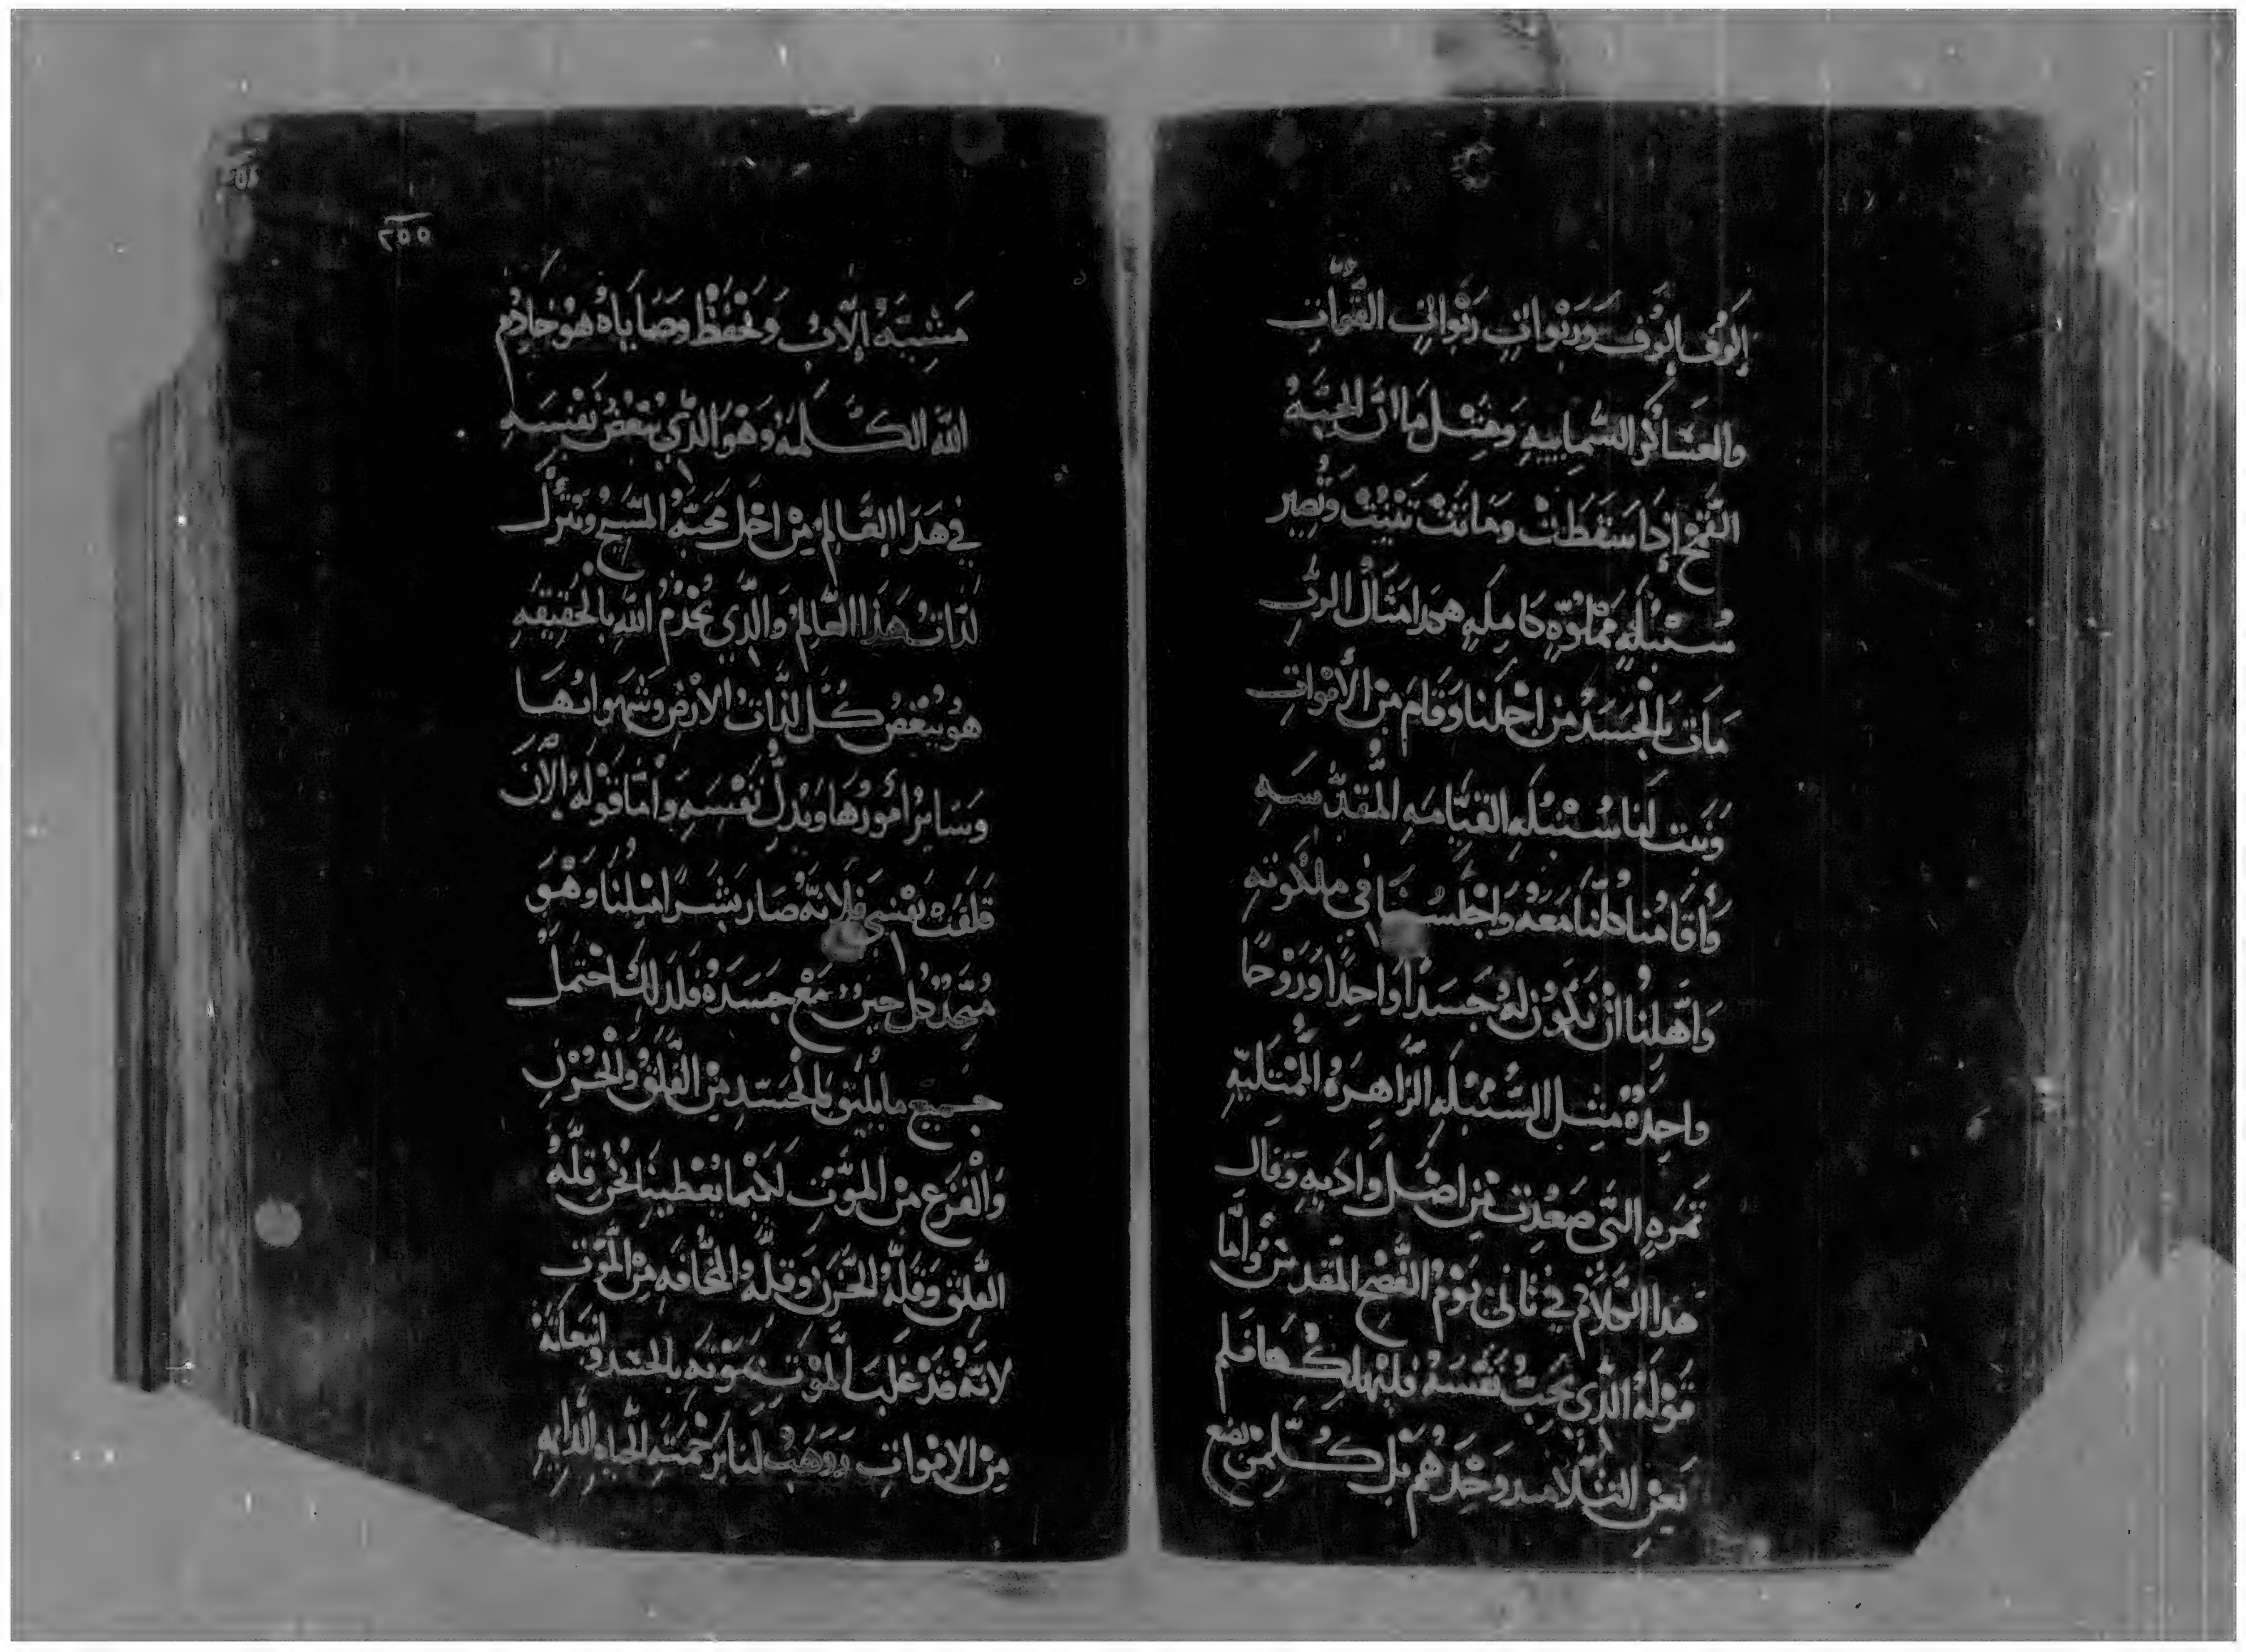 إلوف الوف وربوات ربوات القوات
والعساكر السماييه ومثل ما ان الحبه
القمح إذا سقطت وماتت تنبت وتصير
سنبله مملوه كامله هكذا مثال الرب
مات بالجسد من اجلنا وقام من الأموات
ونبت لنا سنبله القيامه المقدسه
وأقامنا كلنا معه واجلسنا في ملكوته
واهلنا ان نكون له جسدا واحدا وروحا
واحده مثل السنبله الزاهره الممتليه
ثمره التي صعدت من اصل وادبه وقال
هذا الكلام في ثاني يوم الفصح المقدس وأما
قوله الذي يحب نفسه فليهلكها فلم
يعن التلاميد وحدهم بل كلمن يصنع
٢٥٥
مشيه الاب ويحفظ وصاياه هو خادم
الله الكلمه وهو الذي يبغض نفسه
في هذا العالم من اجل محبه المسيح ويترك
لذات هذا العالم والذي يخدم الله بالحقيقه
هو يبغض كل لذات الارض وشهواتها
وساير أمورها ويذل نفسه واما قوله الآن
قلقت نفسي فلانه صار بشرا مثلنا وهو
متحد كل حين مع جسده فلذلك احتمل
جميع ما يليق بالجسد من القلق والحزن
والفزع من الموت لكيما يعطينا نحن قله
القلق وقله الحزن وقله المخافه من الموت
لانه قد غلب الموت بموته بالجسد وانبعاثه
من الاموات ووهب لنا برحمته الحياه الدايمه